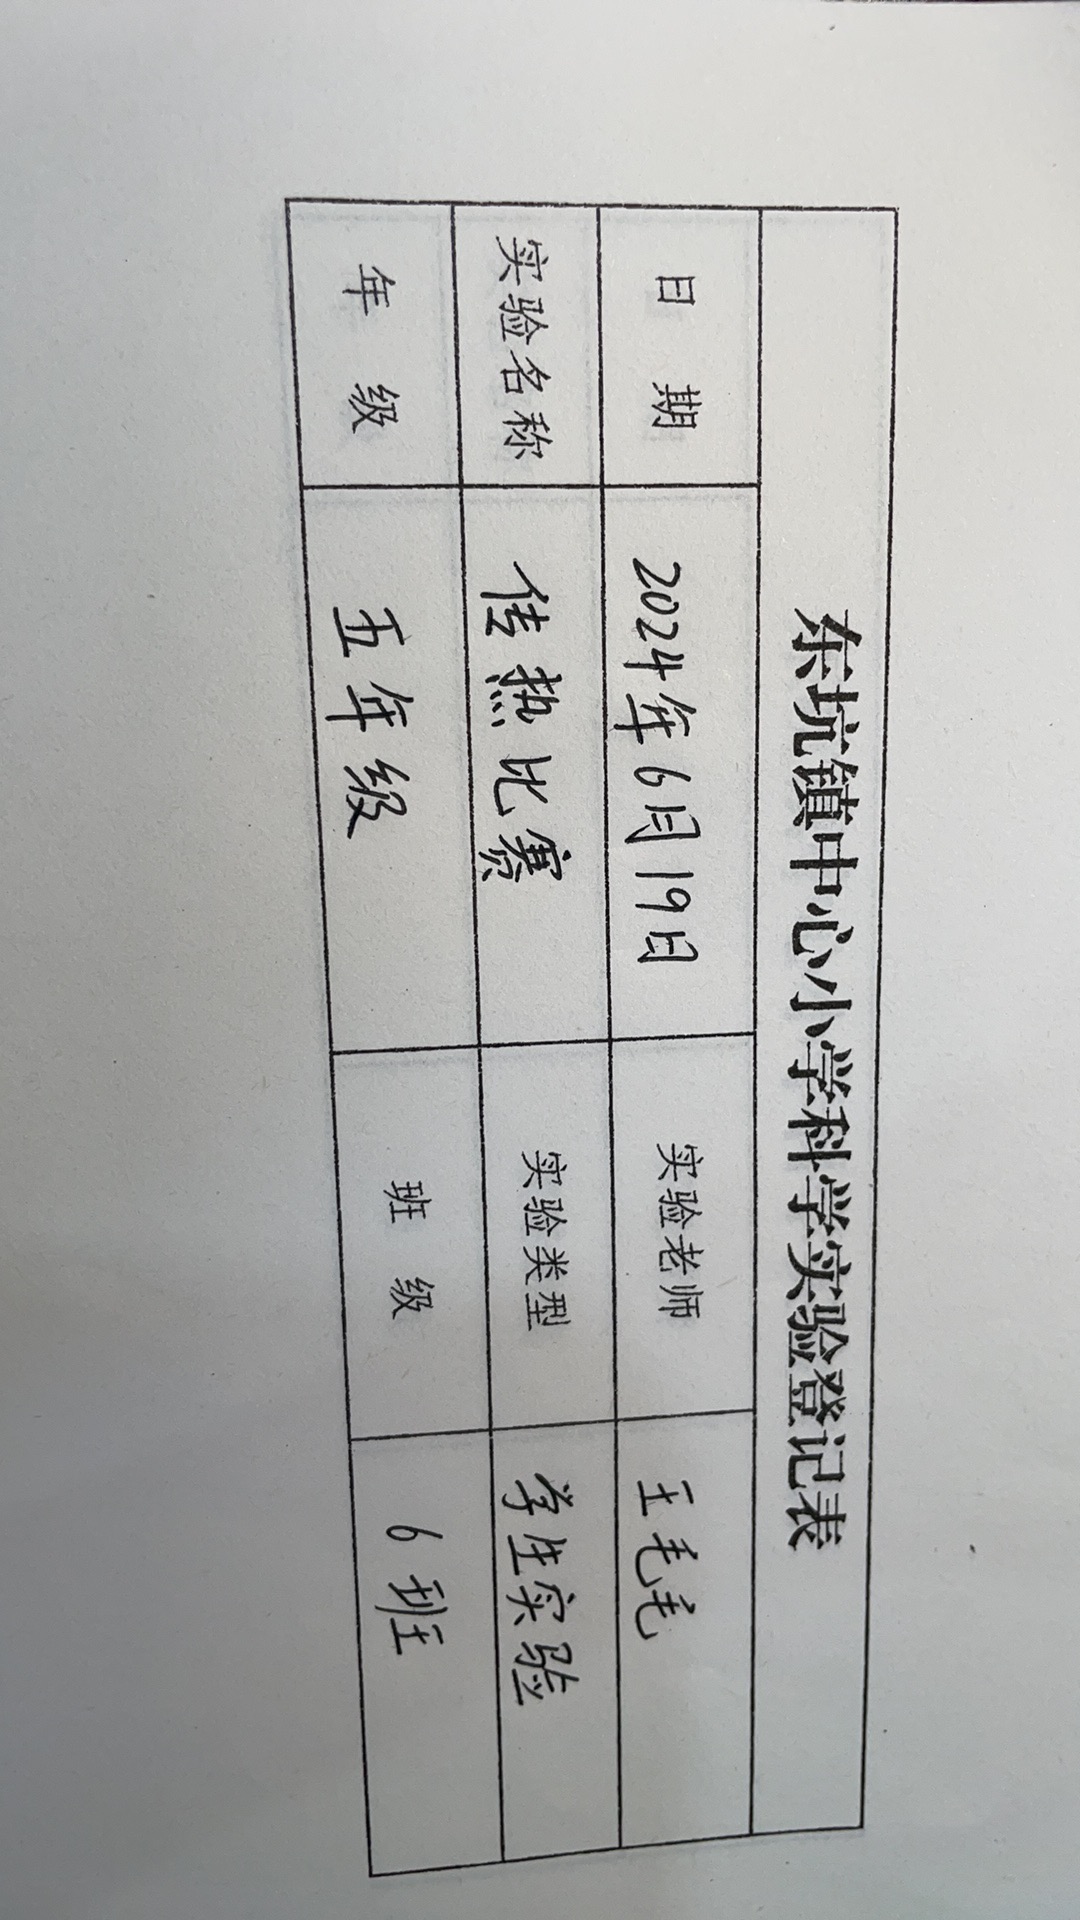 东坑镇中心小学科学实验登记表
日 期 2024年6月19日 实验老师 王毛毛
实验名称 传热比赛 实验类型 学生实验
年 级 五年级 班 级 6班